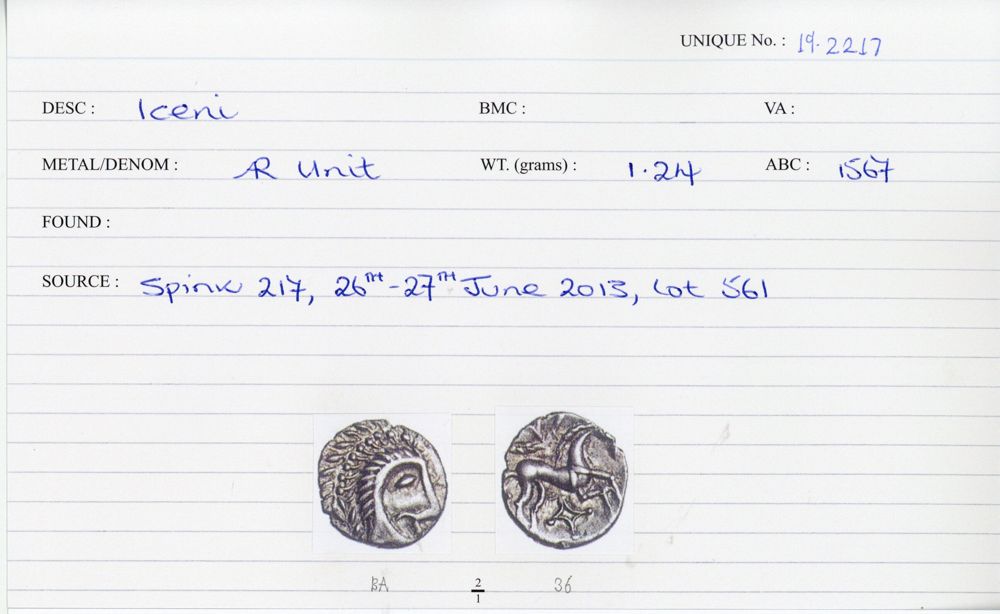 UNIQUE No. : 19.2217
DESC : Iceni BMC : VA :
METAL/DENOM : AR Unit WT. (grams) : 1.24 ABC : 1567
FOUND :
SOURCE : Spink 217, 26TH-27TH June 2013, Lot 561
BA 2/1 36